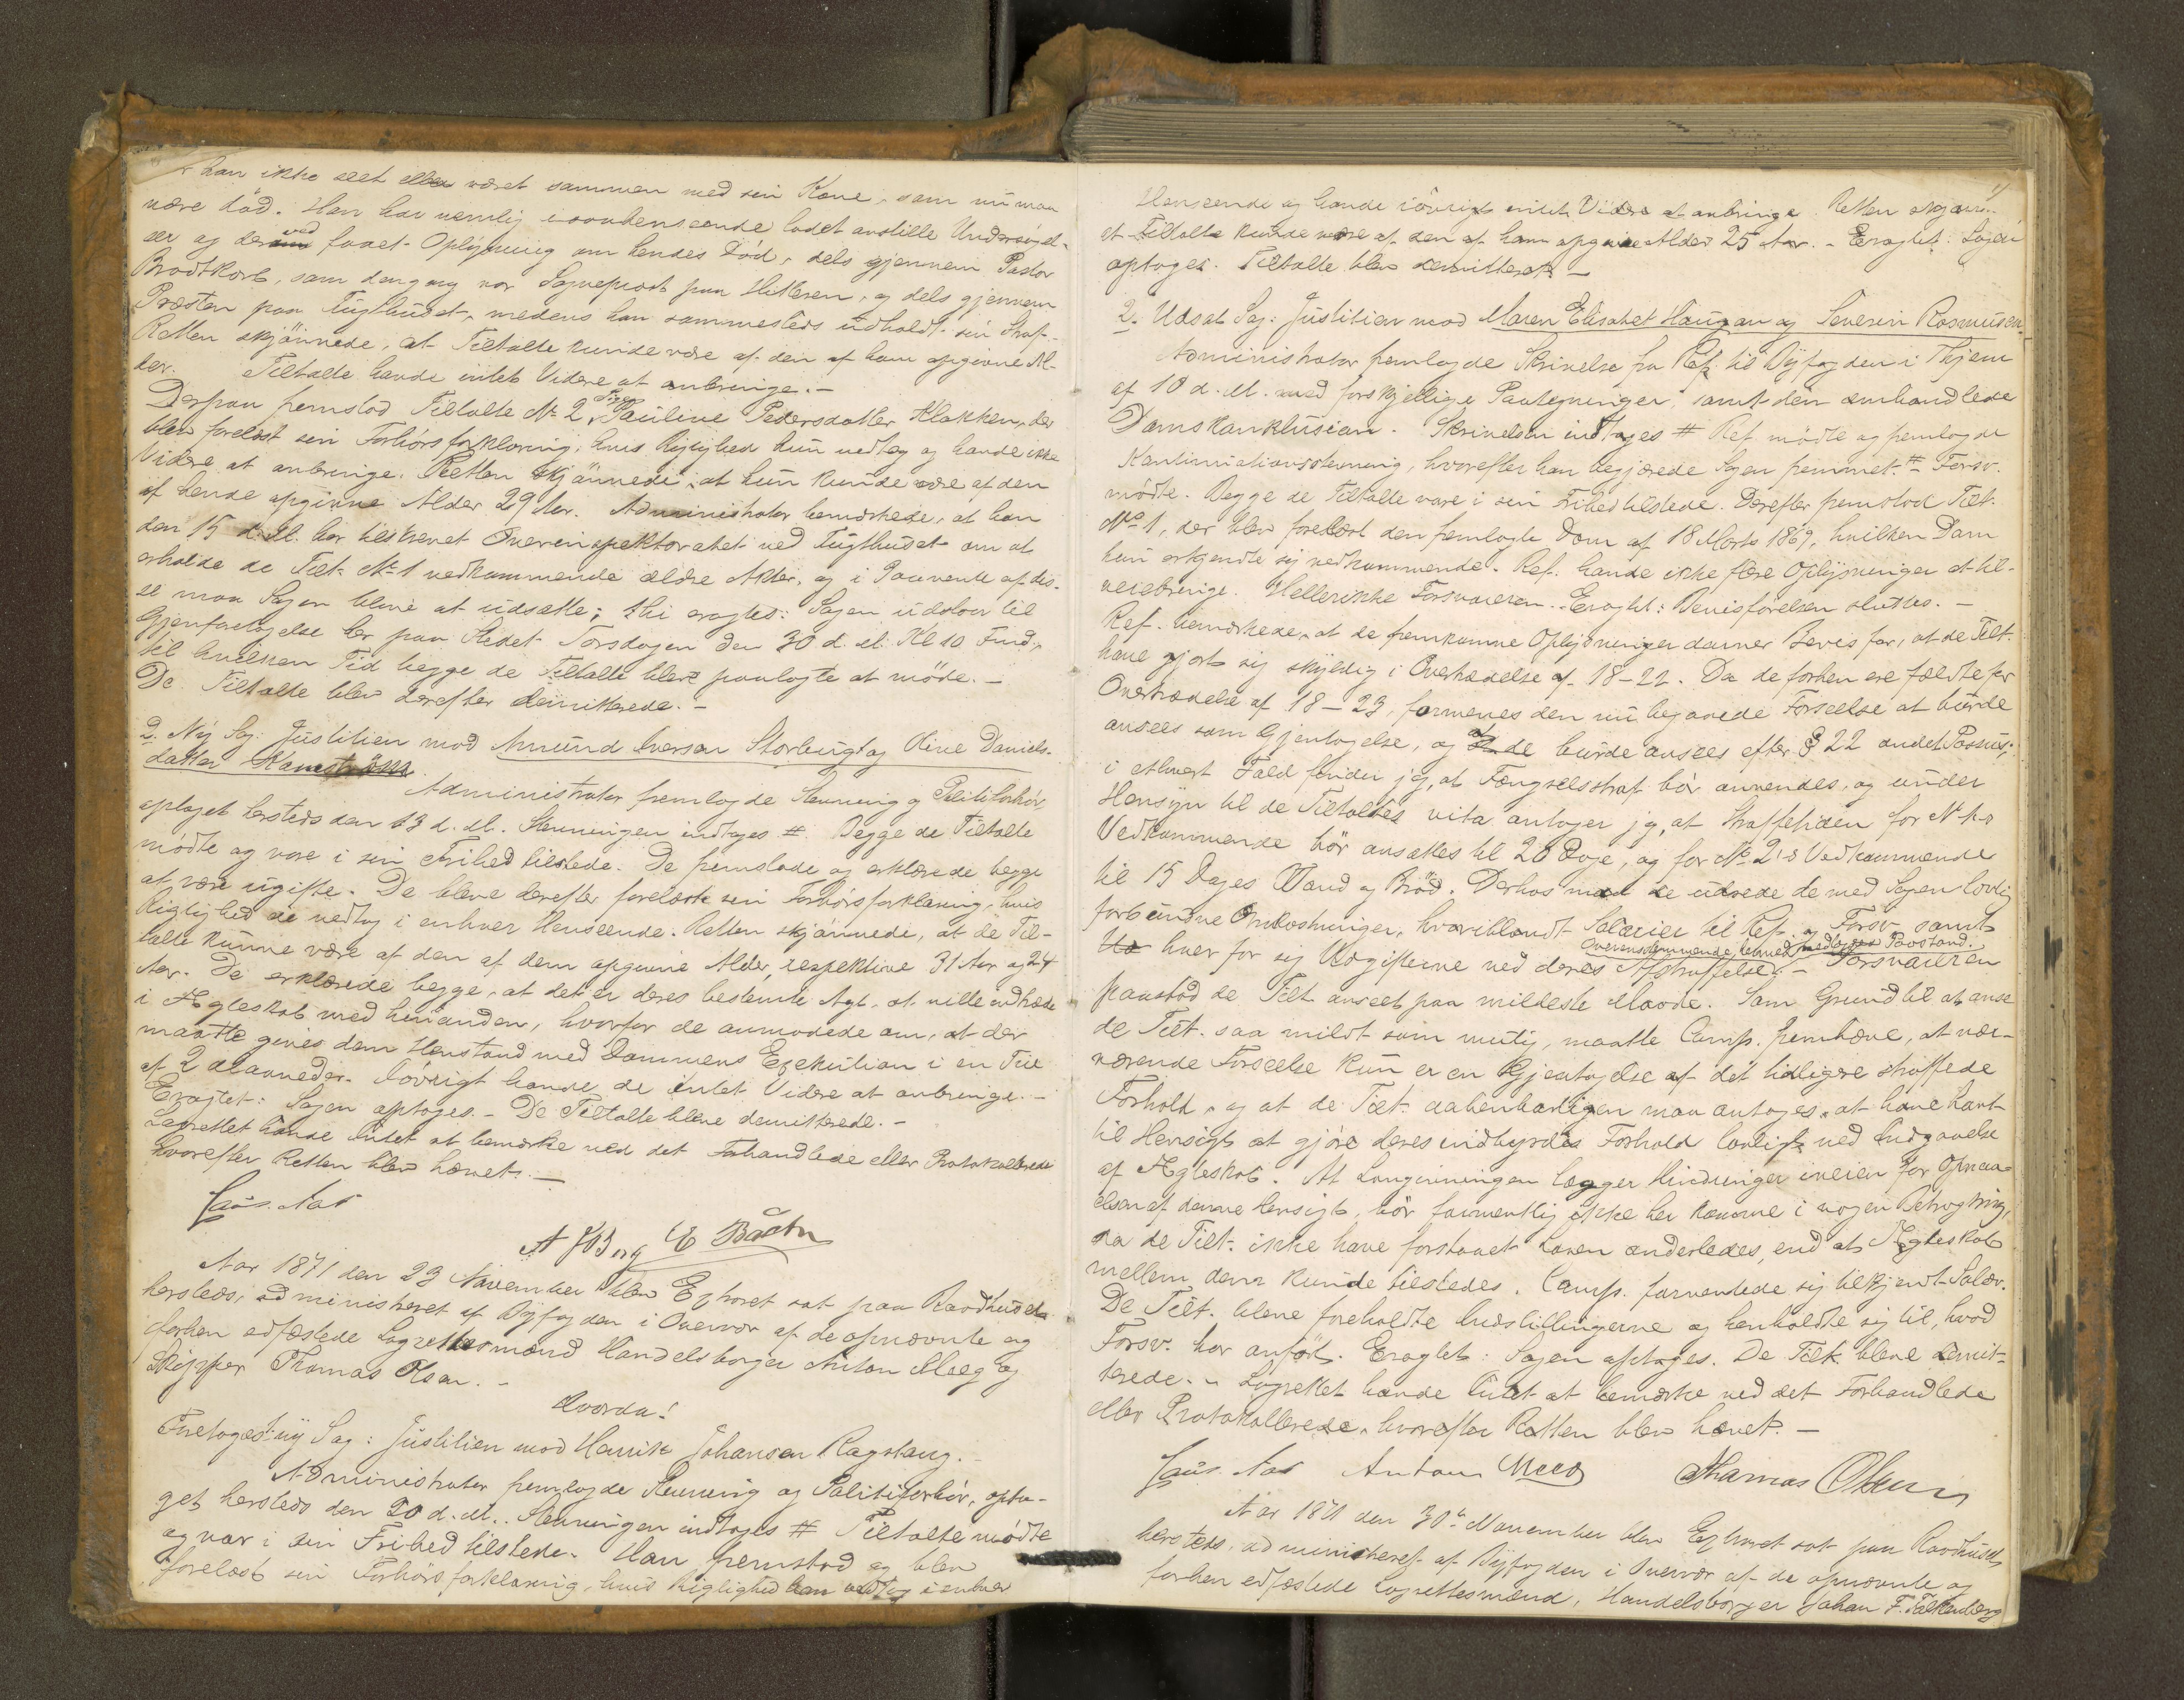 har ikke seet eller været sammen med sin Kone, som nu maa
være död. Han har nemlig i saahenseende ladet anstille Undersögel-
ser og derved faaet Oplysning om hendes Död, dels gjennem Pastor
Brodtkorb, som dengang var Sognepræst paa Hitteren, og dels gjennem
Præsten paa Tugthuset, medens han sammesteds udholdt sin Straf.
Retten skjönnede, at Tiltalte kunde være af den af ham opgivne Al-
der. Tiltalte havde intet Videre at anbringe. -
Derpaa fremstod Tiltalte No 2, Pige Pauline Pedersdatter Klakken, der
blev forelæst sin Forhörsforklaring, hvis Rigtighed hun vedtog og havde ikke
Videre at anbringe. Retten skjönnede, at hun kunde være af den
af hende opgivne Alder 29 Aar. Administrator bemærkede, at han
den 15 d. M. har tilskrevet Overinspektoratet ved Tugthuset om at
erholde de Tilt. No 1 vedkommende ældre Akter, og i Paavente af dis-
se maa Sagen blive at udsætte; thi eragtes: Sagen udstaar til
Gjenforetagelse her paa Stedet Torsdagen den 30 d. M. Kl 10 Fmd.,
til hvilken Tid begge de Tiltalte bleve paalagte at möde. -
De Tiltalte blev derefter demitterede. -
2. Ny Sag: Justitien mod Amund Iversen Storbugt og Oline Daniels-
datter
Administrator fremlagde Stævning og Politiforhör,
optaget hersteds den 13 d. M. Stævningen indtages # Begge de Tiltalte
mödte og vare i sin Frihed tilstede. De fremstode og erklærede begge
at være ugifte. De bleve derefter forelæste sin Forhörsforklaring, hvis
Rigtighed de vedtog i enhver Henseende. Retten skjönnede, at de Til-
talte kunne være af den af dem opgivne Alder, respektive 31 Aar og 24
Aar. De erklærede begge, at det er deres bestemte Agt, at ville indtræde
i Ægteskab med hinanden, hvorfor de anmodede om, at der
maatte gives dem Henstand med Dommens Exekution i en Tid
af 2 Maaneder. Iövrigt havde de intet Videre at anbringe. -
Eragtet: Sagen optages. - De Tiltalte bleve demitterede. -
Lagrettet havde Intet at bemærke ved det Forhandlede eller Protokollerede
hvorefter Retten blev hævet. -
Aar 1871 den 23 November blev Extraret sat paa Raadhuset
hersteds, administreret af Byfogden i Overvær af de opnævnte og
forhen edfæstede Lagrettesmænd Handelsborger Anton Moeg og
Skipper Thomas Olsen. -
Hvorda!
Foretoges ny Sag: Justitien mod Henrik Johansen Ragstang. -
Administrator fremlagde Stævning og Politiforhör, opta-
get hersteds den 20 d. M. Stævningen indtages # Tiltalte mödte
og var i sin Frihed tilstede. Han fremstod og blev
forelæst sin Forhörsforklaring, hvis Rigtighed han vedtog i enhver
Henseende og havde iövrigt intet Videre at anbringe. Retten skjönn.
at Tiltalte kunde være af den af ham opgivne Alder 25 Aar. - Eragtet: Sagen
optages. Tiltalte blev demitteret. -
2. Udsat Sag: Justitien mod Maren Elisabet Haugan og Severin Rasmussen.
Administrator fremlagde Skrivelse fra Ref. til Byfogden i Thjem
af 10 d. M. med forskjellige Paategninger, samt den omhandlede
Domskonklusion. Skrivelsen indtages # Ref. mödte og fremlagde
Kontinuationsstævning, hvorefter han begjærede Sagen fremmet. # Forsv.
mödte. Begge de Tiltalte vare i sin Frihed tilstede. Derefter fremstod Tilt.
No 1, der blev forelæst den fremlagte Dom af 18 Marts 1869, hvilken Dom
hun erkjendte sig vedkommende. Ref. havde ikke flere Oplysninger at til-
veiebringe. Hellerikke Forsvareren. Eragtet: Bevisförelsen sluttes. -
Ref. bemærkede, at de fremkomne Oplysninger danner Bevis for, at de Tilt.
have gjort sig skyldig i Overtrædelse af 18-22. Da de forhen ere fældte for
Overtrædelse af 18-23, formenes den nu begaaede Forseelse at burde
ansees som Gjentagelse, og at de burde ansees efter § 22 andet Passus;
i ethvert Fald finder jeg, at Fængselsstraf bör anvendes, og under
Hensyn til de Tiltaltes vita antager jeg, at Straffetiden for No 1's
Vedkommende bör ansættes til 20 Dage, og for No 2's Vedkommende
til 15 Dages Vand og Bröd. Derhos maa de udrede de med Sagen lovlig
forbundne Omkostninger, hvoriblandt Salarier til Ref. og Forsv. samt
hver for sig Udgifterne ved deres Afstraffelse. - Overensstemmende hermed nedlagdes Paastand. Forsvareren
paastod de Tilt. anseet paa mildeste Maade. Som Grund til at anse
de Tilt. saa mildt som mulig, maatte Comp. fremhæve, at nær-
værende Forseelse kun er en Gjentagelse af det tidligere straffede
Forhold, og at de Tilt. aabenbarligen maa antages, at have havt
til Hensigt at gjöre deres indbyrdes Forhold lovligt ved Indgaaelse
af Ægteskab. At Lovgivningen lægger Hindringer iveien for Opnaa-
elsen af denne Hensigt, bör formentlig ikke her komme i nogen Betragtning,
da de Tilt. ikke have forstaaet Loven anderledes, end at Ægteskab
mellem dem kunde tilstedes. Comp. forventede sig tilkjendt Salær.
De Tilt. bleve foreholdte Indstillingerne og henholdte sig til, hvad
Forsv. har anfört. Eragtet: Sagen optages. De Tilt. bleve demit-
terede. - Lagrettet havde Intet at bemærke ved det Forhandlede
eller Protokollerede, hvorefter Retten blev hævet. -
Anton Moeg Thomas Olsen
Aar 1871 den 30te November blev Extraret sat paa Raadhuset
hersteds, administreret af Byfogden i Overvær af de opnævnte og
forhen edfæstede Lagrettesmænd, Handelsborger Johan F. Falkenberg